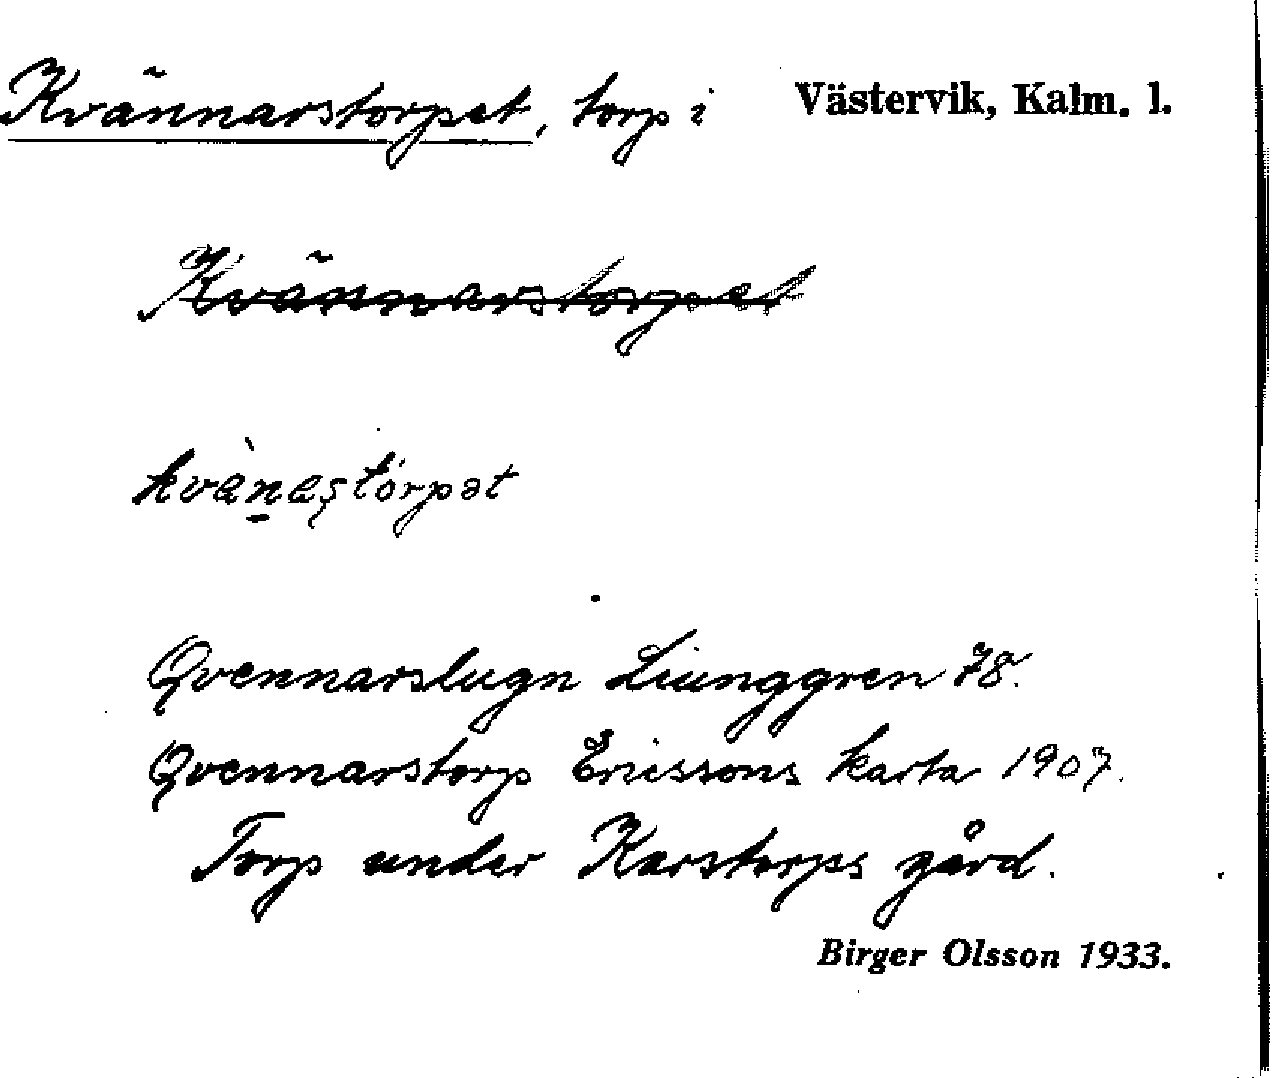 Kvännarstorpet, torp i Västervik, Kalm. l.
Kvännarstorpet
kvänaştorpət
Qvennarslugn Liunggren 78.
Qvennarstorp Ericssons karta 1907.
Torp under Karstorps gård.
Birger Olsson 1933.